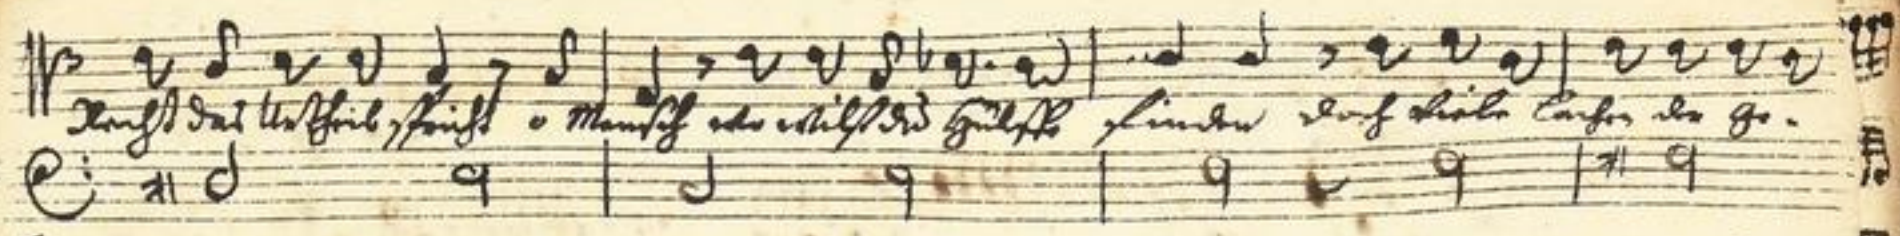 Recht das Urtheil spricht o Mensch wo wilst du Hülffe finden doch viele lachen der ge-